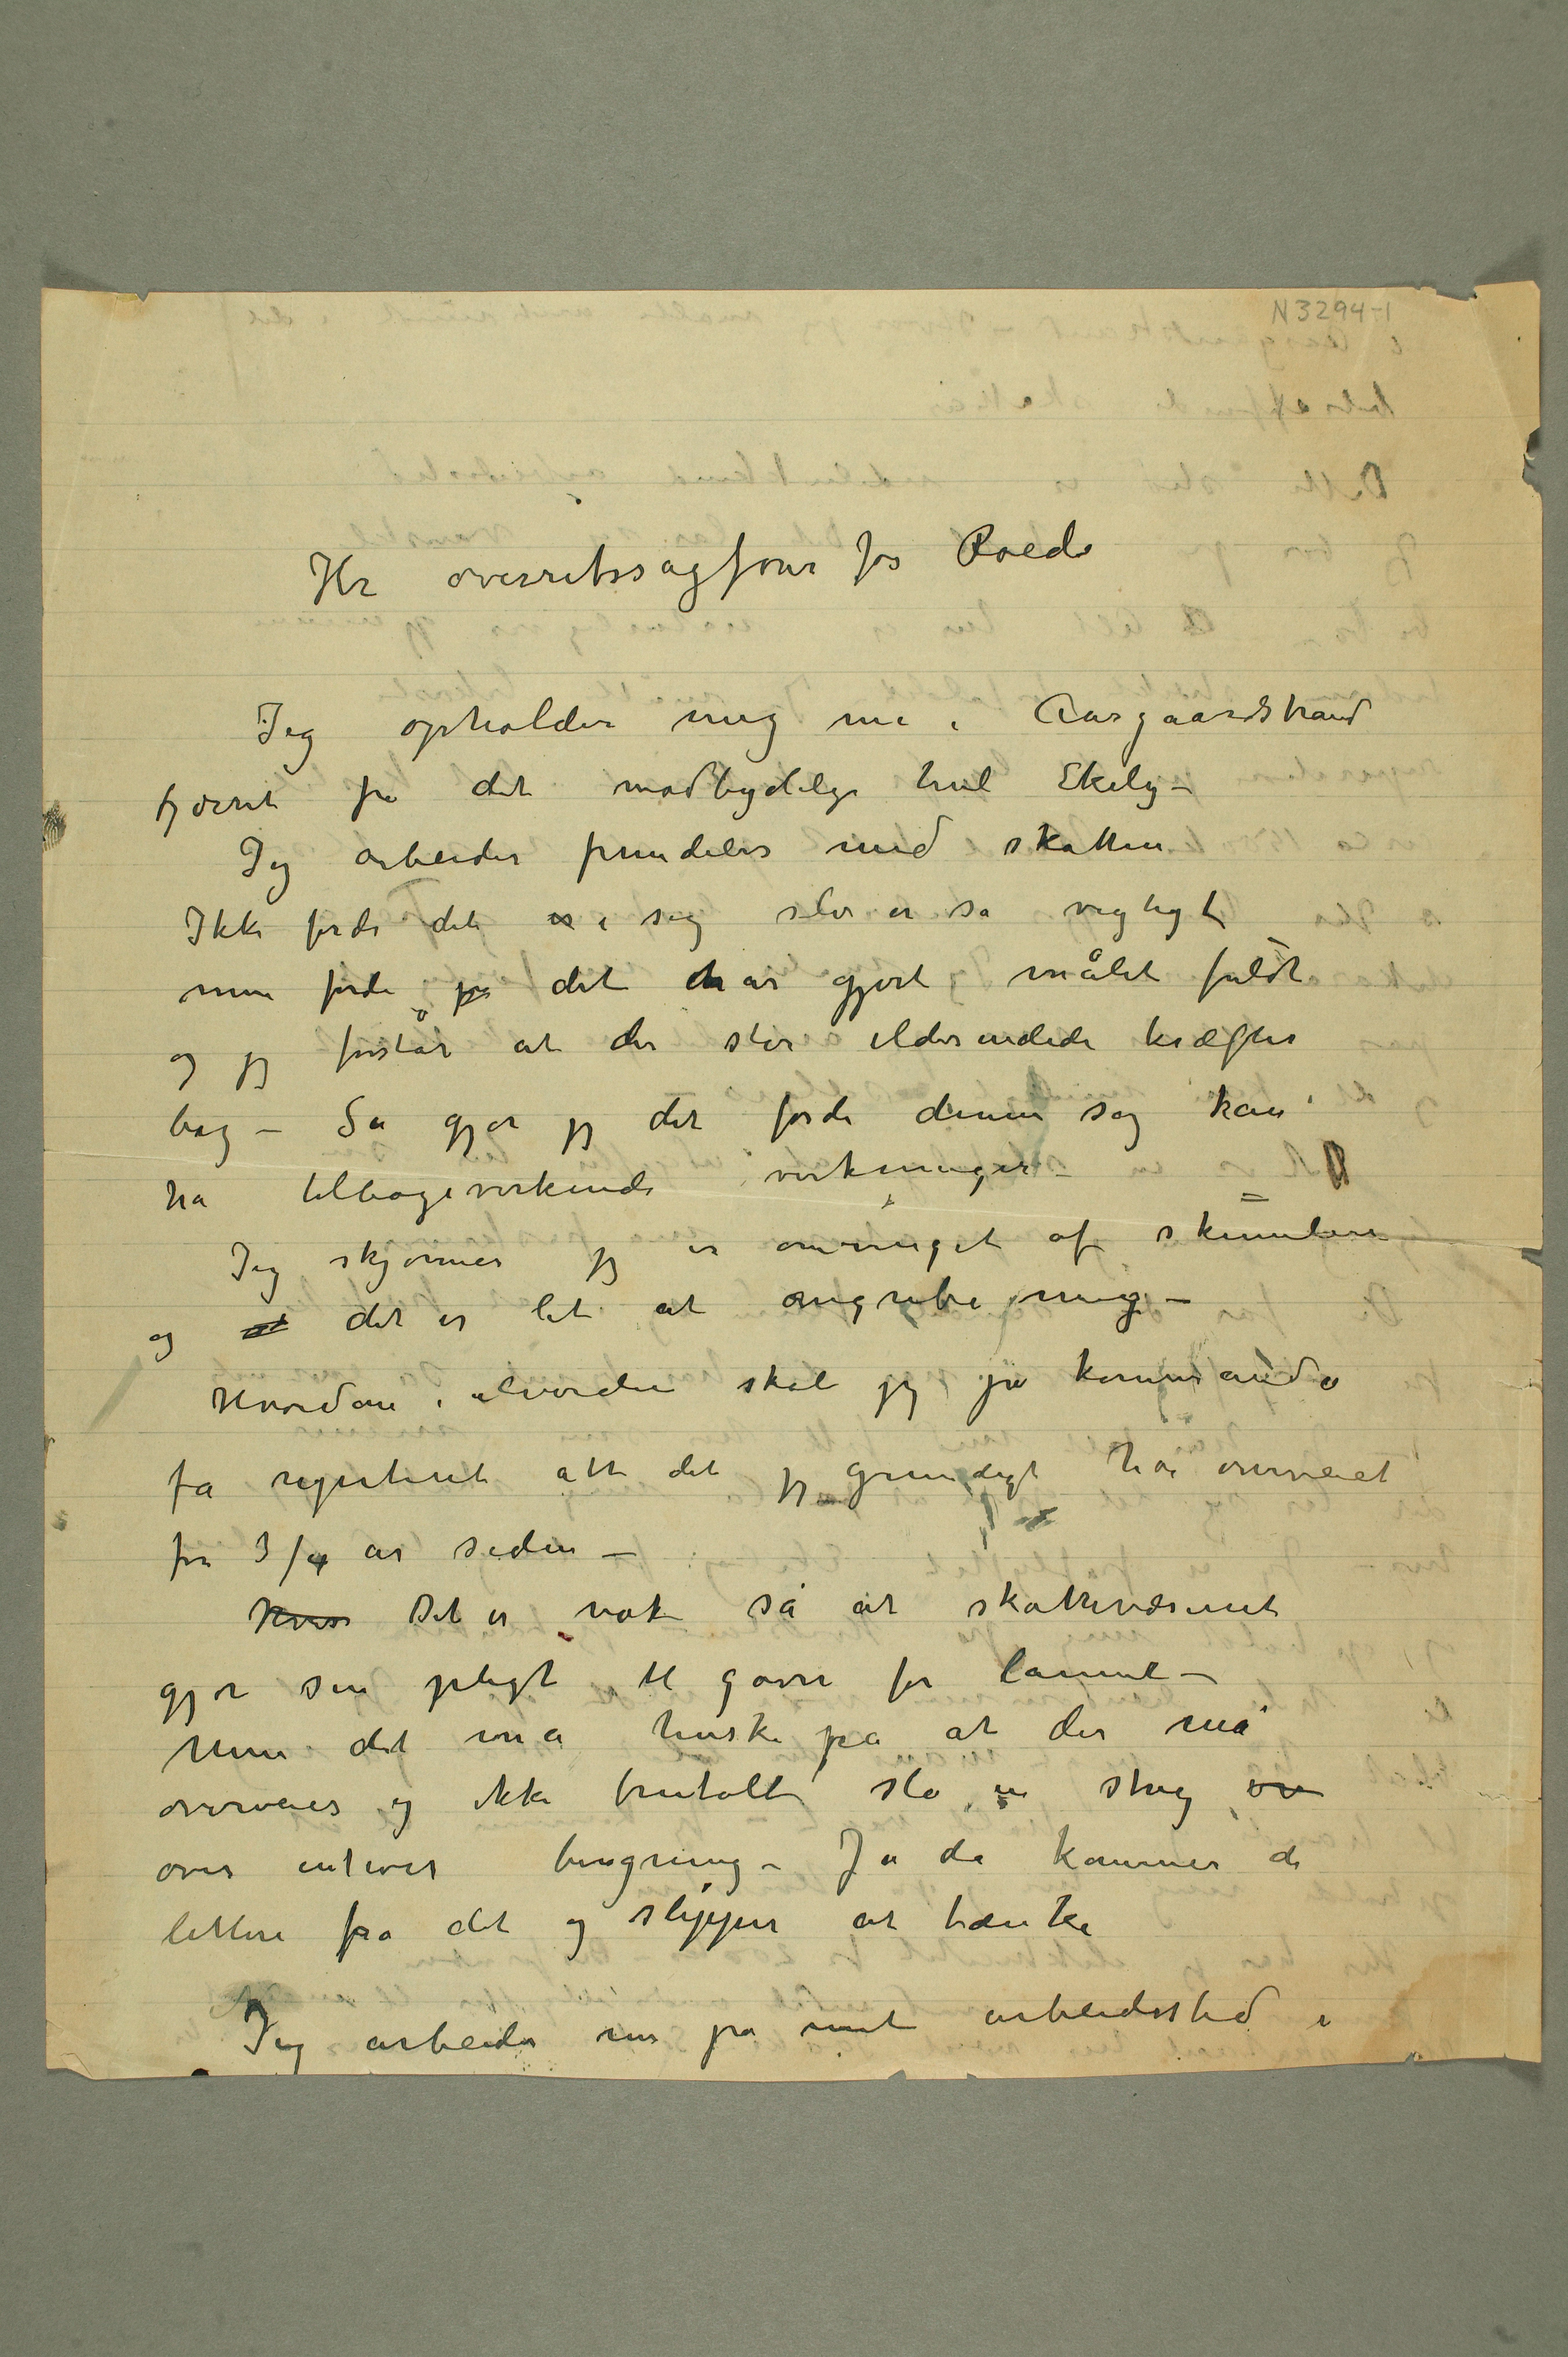 N 3294-1
Hr overretssagfører Joh Roede
Jeg opholder mig nu i Aasgaardstrand
fjernt fra det modbydelige hul Ekely –
Jeg arbeider fremdeles med skatten
Ikke fordi det er i sig selv er så vigtigt
men fordi det har gjort målet fuldt
og jeg forstår at der står ildesindede kræfter
bag – Så gjør jeg det fordi denne sag kan
ha tilbagevirkende virkninger –
Jeg skjønner jeg er omringet af skumlere
og at det er let at angribe mig –
Hvordan i alverden skal jeg på kommando
få repeteret alt det jeg grundigt har overveiet
for 3/4 år siden –
Hvis Det er nok så at skattevæsenet
gjør sin pligt til gavn for landet –
Men det må huske på at der må
overveies og ikke brutalt slå en streg ov
over enhver beregning – Ja da kommer de
lettere fra det og slipper at tænke
Jeg arbeider nu på mit arbeidssted i